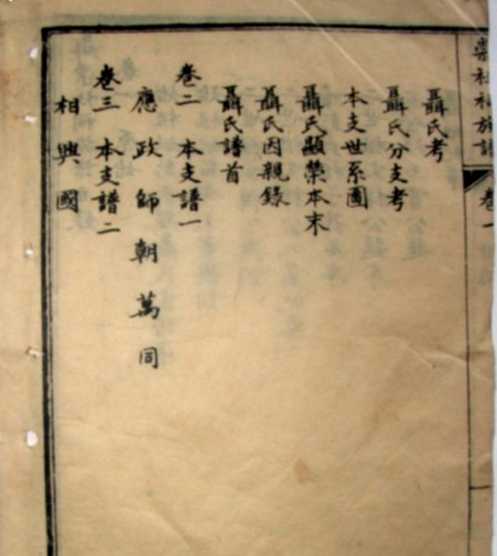 聶氏考
聶氏分支考
本支世系圖
聶氏顯榮本末
聶氏因親錄
聶氏譜首
卷二 本支譜一
應政師朝萬同
卷三 本支譜二
相興國